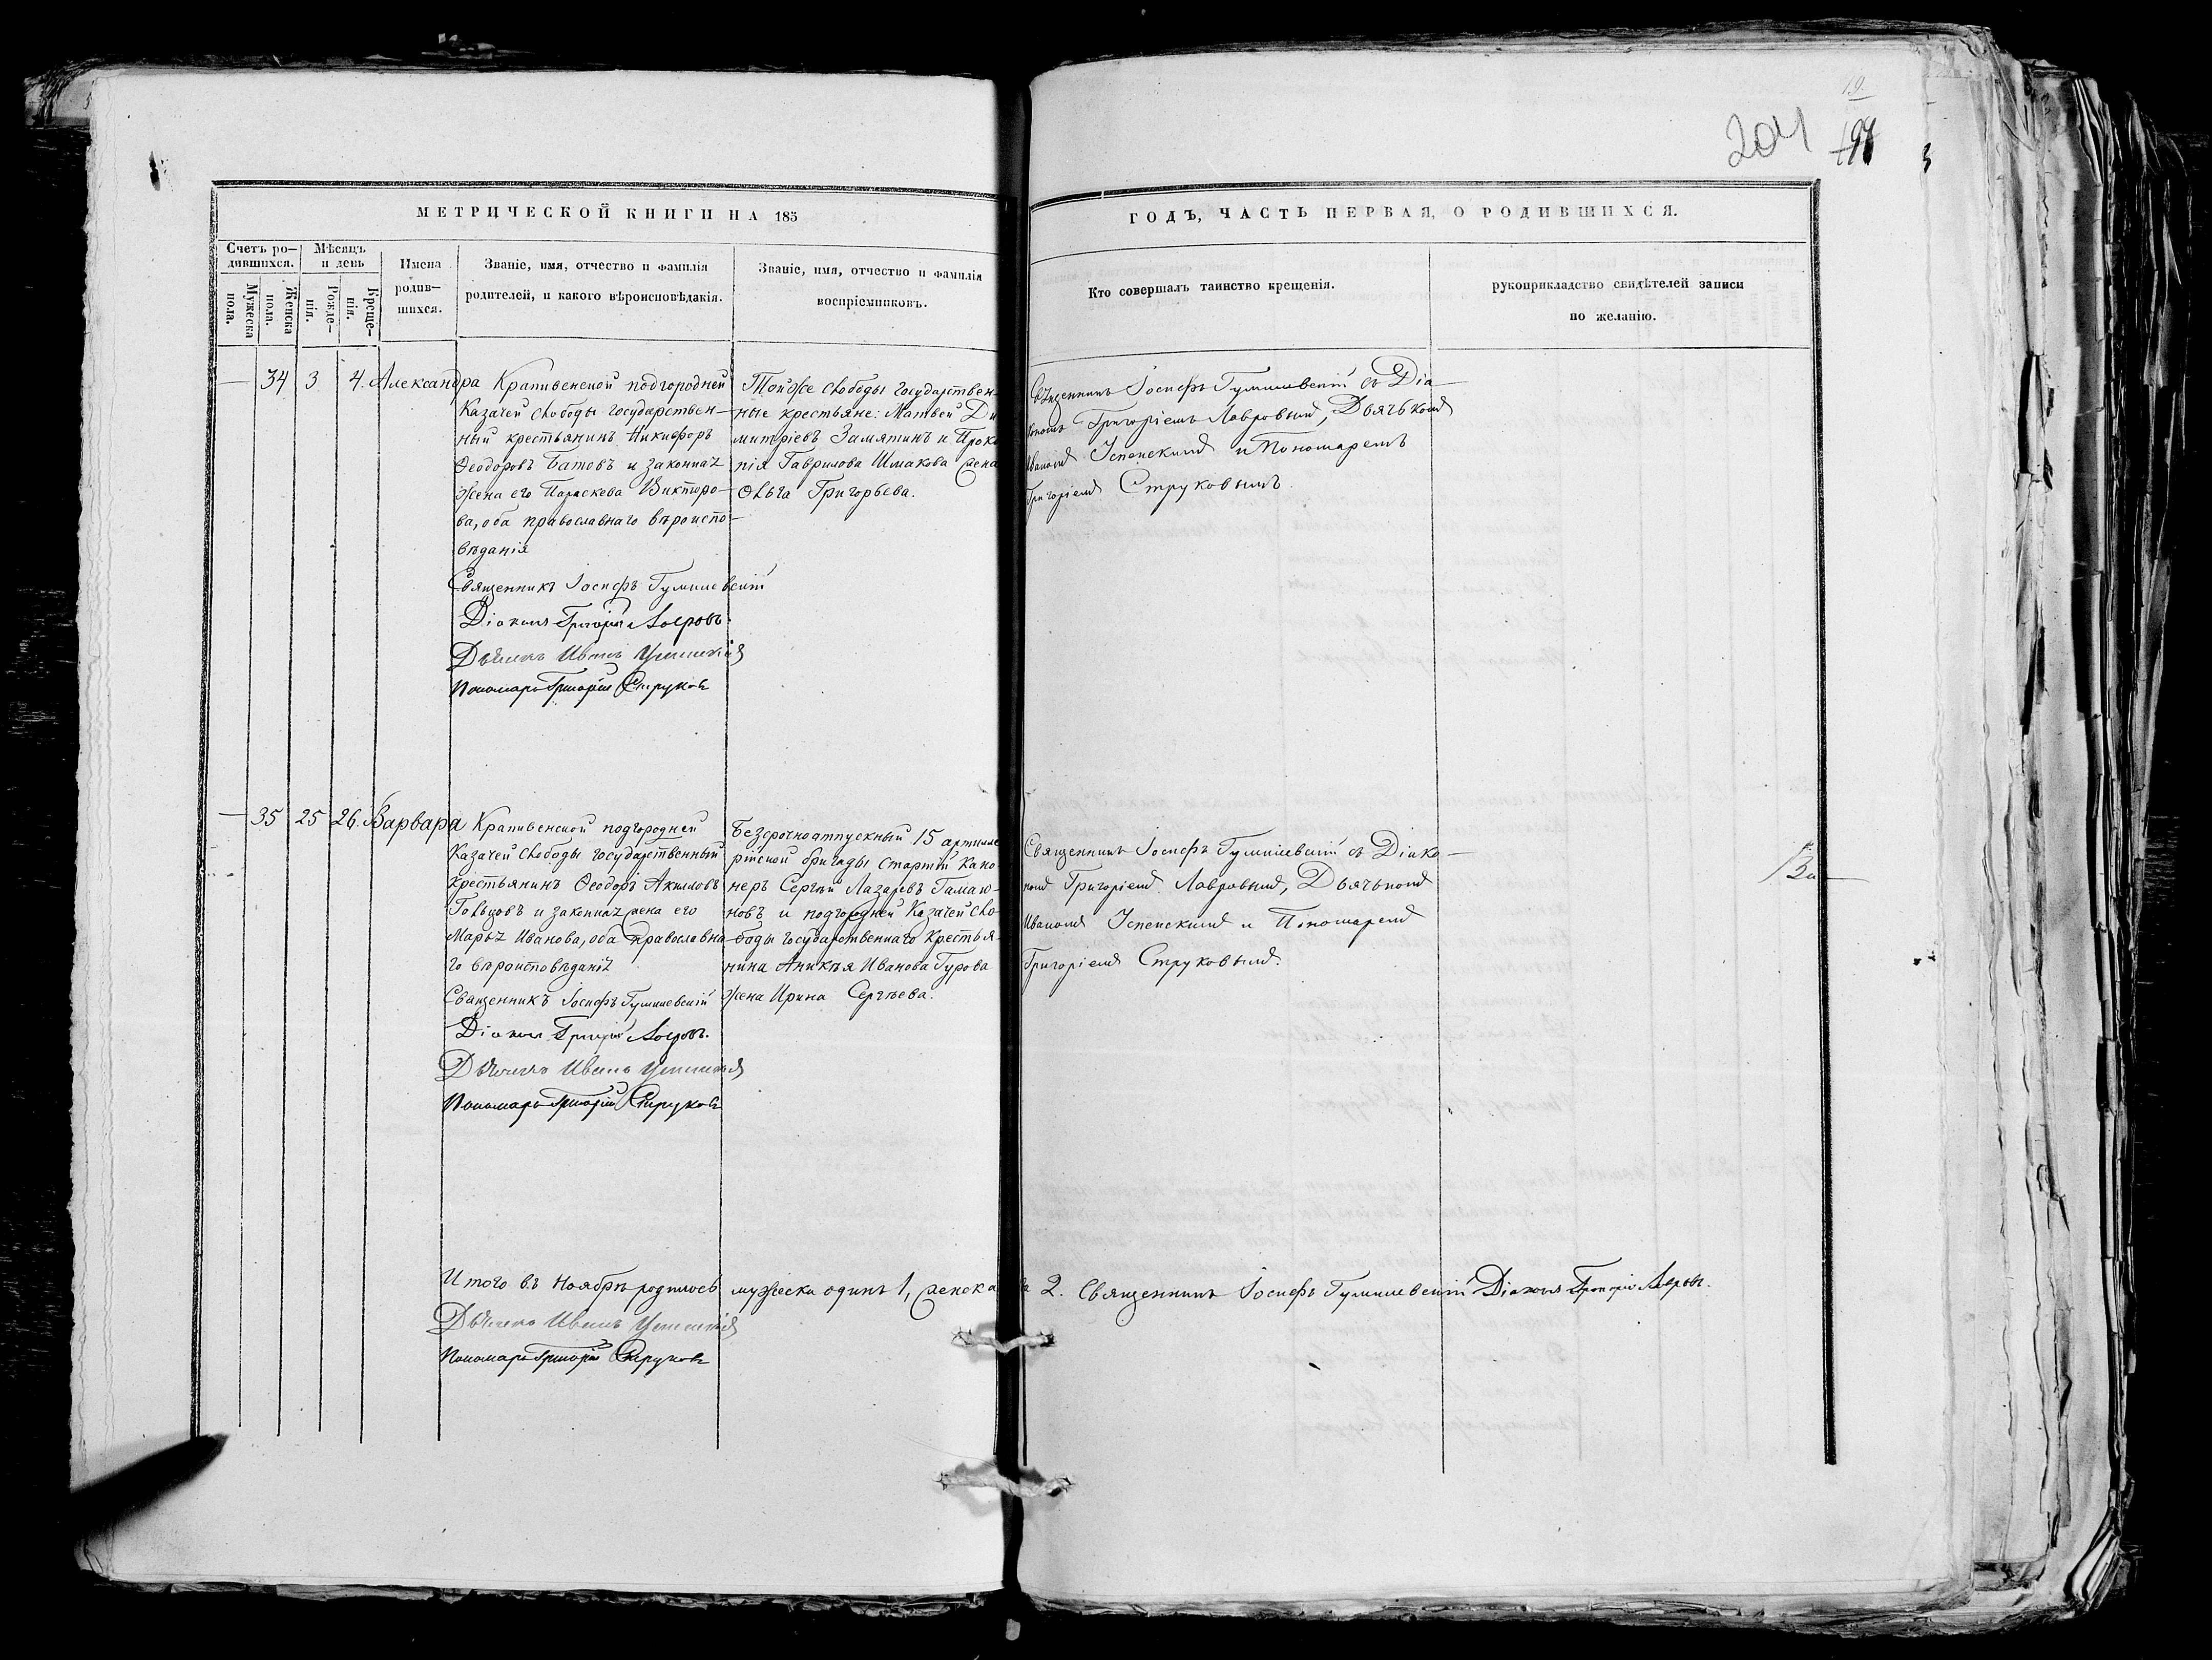 19.
204
197
МЕТРИЧЕСКОЙ КНИГИ НА 185
ГОДЪ, ЧАСТЬ ПЕРВАЯ, О РОДИВШИХСЯ.
Счетъ ро-
дившихся.
Мужеска
пола.
Женска
пола.
Мѣсяцъ
и день
Рожде-
нія.
Креще-
нія.
Имена
родив-
шихся.
Званіе, имя, отчество и фамилія
родителей, и какого вѣроисповѣданія.
Званіе, имя, отчество и фамилія
воспріемниковъ.
Кто совершалъ таинство крещенія.
рукоприкладство свидѣтелей записи
по желанію.
— 34 3 4. Александра
Крапивенской подгородней
Казачей слободы государствен-
ный крестьянинъ Никифоръ
Ѳеодоровъ Батовъ и законная
жена его Параскева Викторо-
ва, оба православнаго вѣроиспо-
вѣданія
Священникъ Іосифъ Гумилевскій
Діаконъ Григорій Лавровъ.
Дьячекъ Иванъ Успенскій
Пономарь Григорій Струковъ
Той же слободы государствен-
ные крестьяне: Матвей Ди
митріевъ Замятинъ и Проко
пія Гаврилова Шмакова жена
Ольга Григорьева.
Священникъ Іосифъ Гумилевскій съ Діа-
кономъ Григоріемъ Лавровымъ, Дьячькомъ
Иваномъ Успенскимъ и Пономаремъ
Григоріемъ Струковымъ.
— 35 25 26. Варвара
Крапивенской подгородней
Казачей слободы государственный
крестьянинъ Ѳеодоръ Акимовъ
Гольцовъ и законная жена его
Марья Иванова, оба православна-
го вѣроисповѣданія
Священникъ Іосифъ Гумилевскій
Діаконъ Григорій Лавровъ.
Дьячекъ Иванъ Успенскій
Пономарь Григорій Струковъ
Безсрочноотпускный 15 артилле
рійской бригады старшій Кано
неръ Сергѣй Лазаревъ
и подгородней Казачей сло-
боды государственнаго крестья-
нина Аникѣя Иванова Гурова
жена Ирина Сергѣева.
Священникъ Іосифъ Гумилевскій съ Діако-
номъ Григоріемъ Лавровымъ, Дьячькомъ
Иваномъ Успенскимъ и Пономаремъ
Григоріемъ Струковымъ.
Итого въ Ноябрѣ родилось мужеска одинъ 1, женска 2. Священникъ Іосифъ Гумилевскій Діаконъ Григорій Лавровъ.
Дьячекъ Иванъ Успенскій
Пономарь Григорій Струковъ